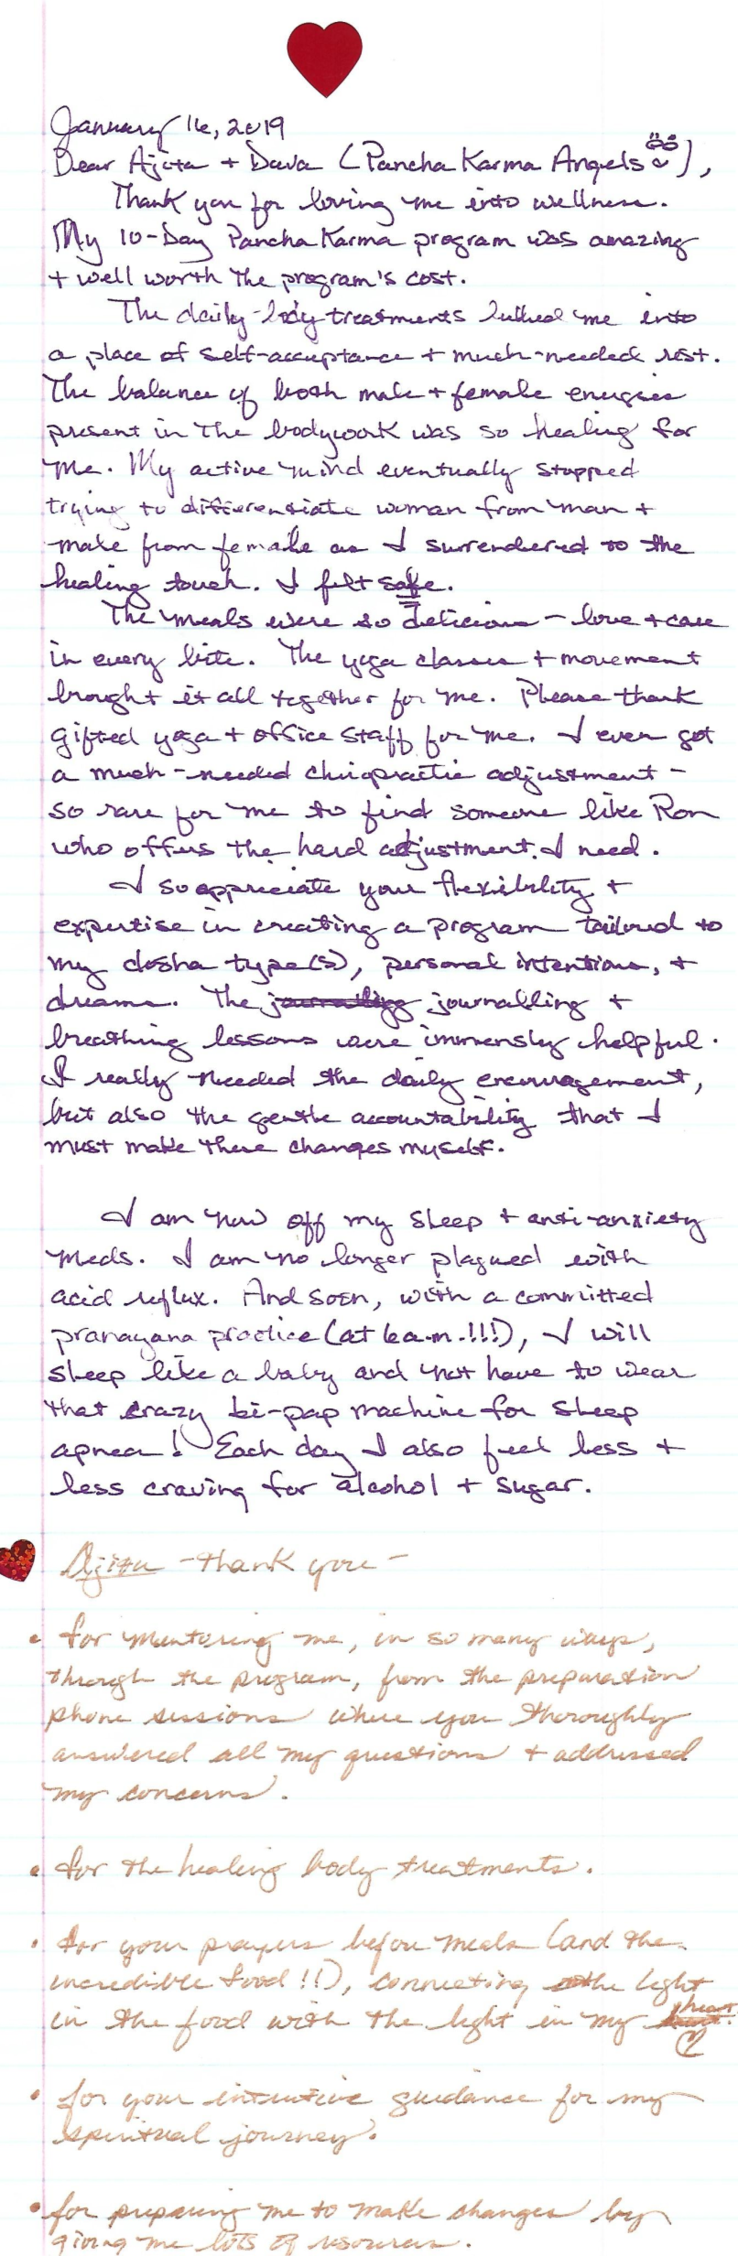 January 16, 2019
Dear Ajita + Dava (Pancha Karma Angels),
Thank you for loving me into wellness.
My 10-Day Pancha Karma program was amazing
+ well worth the program's cost.
The daily body treatments lulled me into
a place of self-acceptance + much-needed rest.
The balance of both male + female energies
present in the bodywork was so healing for
me. My active mind eventually stopped
trying to differentiate woman from man +
male from female as I surrendered to the
healing touch. I felt safe.
The meals were so delicious - love + care
in every bite. The yoga classes + movement
brought it all together for me. Please thank
gifted yoga + office staff for me. I even got
a much-needed chiropractic adjustment -
so rare for me to find someone like Ron
who offers the hard adjustment I need.
I so appreciate your flexibility +
expertise in creating a program tailored to
my dosha type(s), personal intentions, +
dreams. The journalling +
breathing lessons were immensly helpful.
I really needed the daily encouragement,
but also the gentle accountability that I
must make these changes myself.
I am now off my sleep + anti-anxiety
meds. I am no longer plagued with
acid reflux. And soon, with a committed
pranayana practice (at 6 a.m.!!!), I will
sleep like a baby and not have to wear
that crazy bi-pap machine for sleep
apnea! Each day I also feel less +
less craving for alcohol + sugar.
Ajita - thank you -
• for mentoring me, in so many ways,
through the program, from the preparation
phone sessions where you thoroughly
answered all my questions + addressed
my concerns.
• for the healing body treatments.
• for your prayers before meals (and the
incredible food!!), connecting the light
in the food with the light in my heart.
• for your intuitive guidance for my
spiritual journey.
• for preparing me to make changes by
giving me lots of resources.